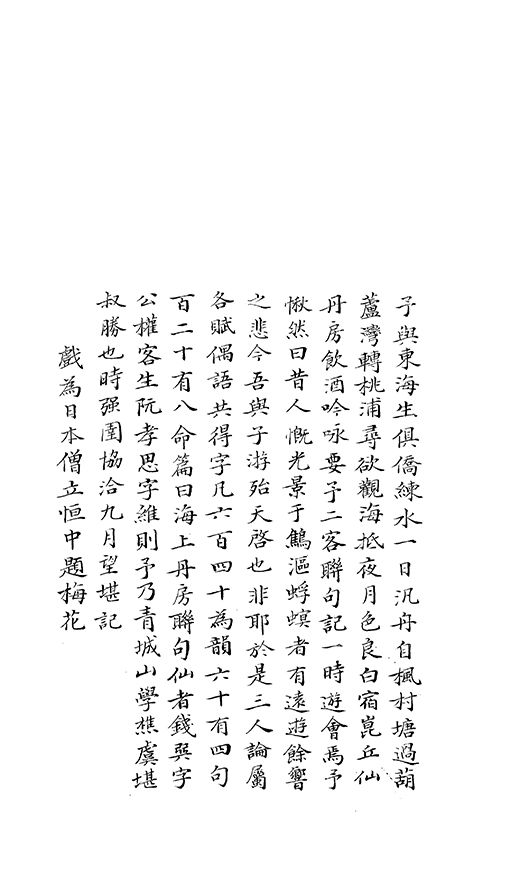 子與東海生俱僑練水一日汎舟自楓村塘過葫
蘆灣轉桃浦尋欲觀海抵夜月色良白宿崑丘仙
丹房飲酒吟咏要予二客聯句記一時遊會焉予
愀然曰昔人慨光景于鷦漚蜉蝗者有遠遊餘響
之悲今吾與子游殆天啓也非耶於是三人論屬
各賦偶語共得字凡六百四十為韻六十有四句
百二十有八命篇曰海上丹房聯句仙者錢巽字
公權客生阮孝思字維則予乃青城山學樵虞堪
叔勝也時强圉協洽九月望堪記
戲為日本僧立恒中題梅花